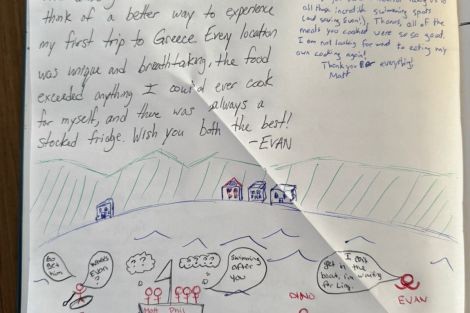 think of a better way to experience
my first trip to Greece. Every location
was unique and breathtaking, the food
exceeded anything I could ever cook
for myself, and there was always a
stocked fridge. Wish you both the best!
-EVAN
all those incredible swimming spots
(and saving Evan!). Thanos, all of the
meals you cooked were so good.
I am not looking forward to eating my
own cooking again!
Thank you for everything!
Matt
Go get
him
Where's
Evan?
???
????
Swimming
after
you
I can't
get in the
boat, I'm waiting
for Ling.
Matt Phil
DINO
EVAN